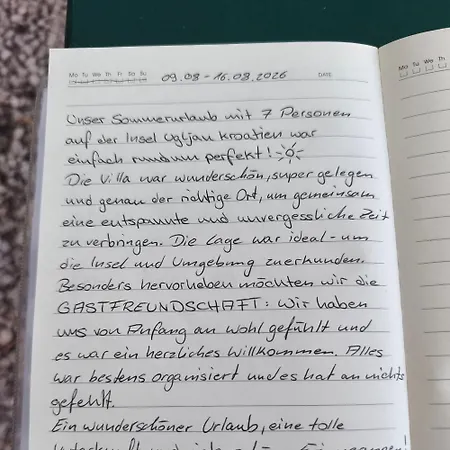 Mo Tu We Th Fr Sa Su
09.08 - 16.08.2026 DATE
Unser Sommerurlaub mit 7 Personen
auf der Insel Ugljan Kroatien war
einfach rundum perfekt!
Die Villa war wunderschön, super gelegen
und genau der richtige Ort, um gemeinsam
eine entspannte und unvergessliche Zeit
zu verbringen. Die Lage war ideal - um
die Insel und Umgebung zu erkunden.
Besonders hervorheben möchten wir die
GASTFREUNDSCHAFT: Wir haben
uns von Anfang an wohl gefühlt und
es war ein herzliches Willkommen. Alles
war bestens organisiert und es hat an nichts
gefehlt.
Ein wunderschöner Urlaub, eine tolle
Mo Tu We Th